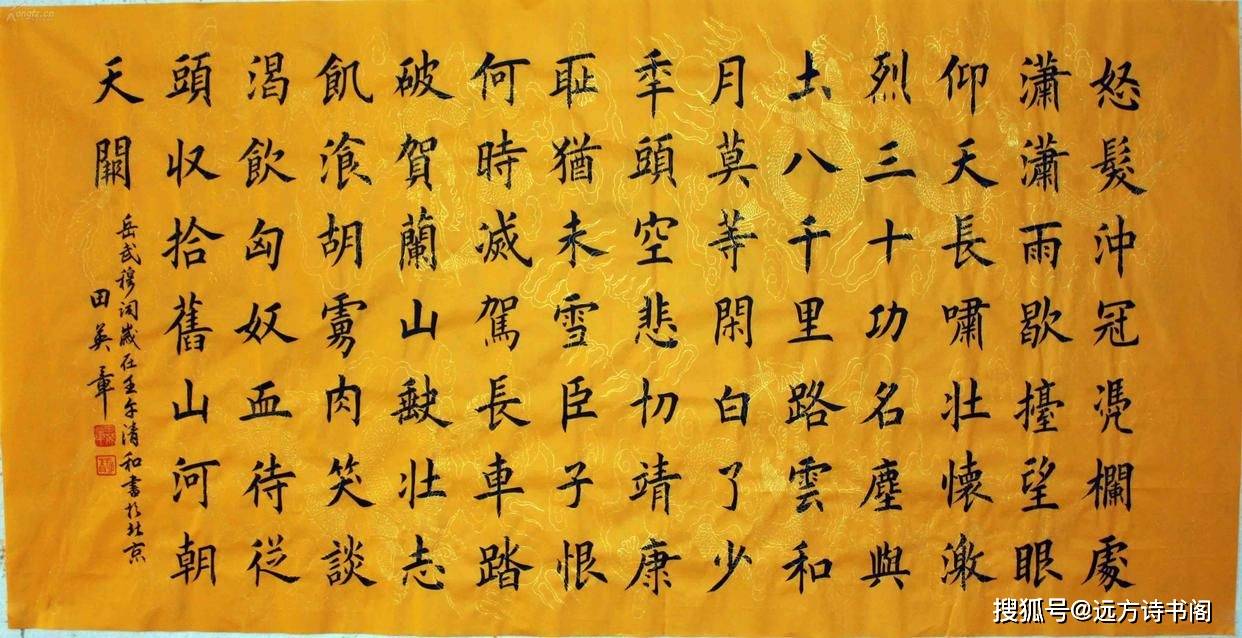 怒髮沖冠凴欄處
瀟瀟雨歇擡望眼
仰天長嘯壯懷激
烈三十功名塵與
土八千里路雲和
月莫等閑白了少
年頭空悲切靖康
恥猶未雪臣子恨
何時滅駕長車踏
破賀蘭山缺壯志
飢飡胡虜肉笑談
渴飲匈奴血待從
頭收拾舊山河朝
天闕
岳武穆词歲在壬午清和書於北京
田英章
搜狐号@远方诗书阁